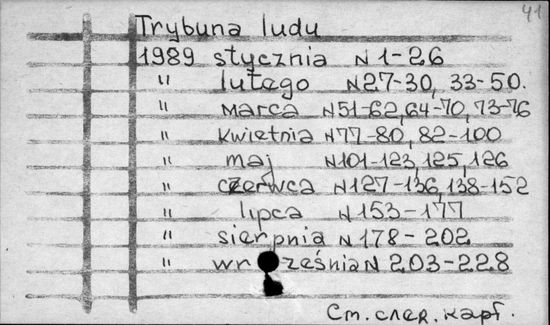 41
Trybuna ludu
1989 stycznia N 1-26
" lutego N27-30, 33-50.
" marca N51-62, 64-70, 73-76
" kwietnia N77-80, 82-100
" maj N101-123, 125, 126
" czerwca N127-136, 138-152
" lipca N153-177
" sierpnia N178-202
" września N 203-228
См. след. карт.